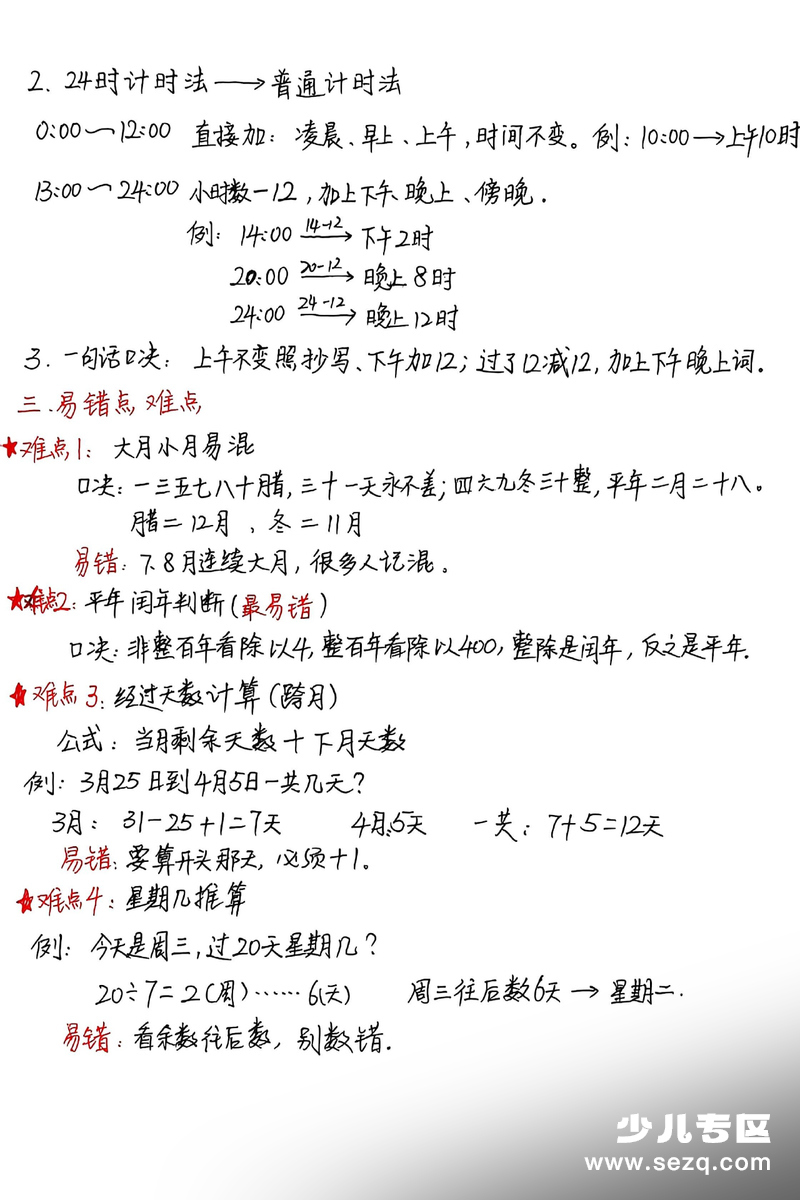 2. 24时计时法→普通计时法
0:00~12:00 直接加：凌晨、早上、上午，时间不变。例：10:00→上午10时
13:00~24:00 小时数-12，加上下午、晚上、傍晚.
例：14:00 14-12→ 下午2时
20:00 20-12→ 晚上8时
24:00 24-12→ 晚上12时
3. 一句话口决：上午不变照抄写、下午加12；过了12减12，加上下午晚上词.
三.易错点 难点
★难点1：大月小月易混
口决：一三五七八十腊，三十一天永不差；四六九冬三十整，平年二月二十八。
腊=12月、冬=11月
易错：7、8月连续大月，很多人记混。
★难点2：平年闰年判断(最易错)
口决：非整百年看除以4，整百年看除以400，整除是闰年，反之是平年.
★难点3：经过天数计算(跨月)
公式：当月剩余天数+下月天数
例：3月25日到4月5日一共几天？
3月：31-25+1=7天 4月:5天 一共：7+5=12天
易错：要算开头那天，必须+1。
★难点4：星期几推算
例：今天是周三，过20天星期几？
20÷7=2(周)……6(天) 周三往后数6天→星期二.
易错：看余数往后数，别数错.
少儿专区
www.sezq.com